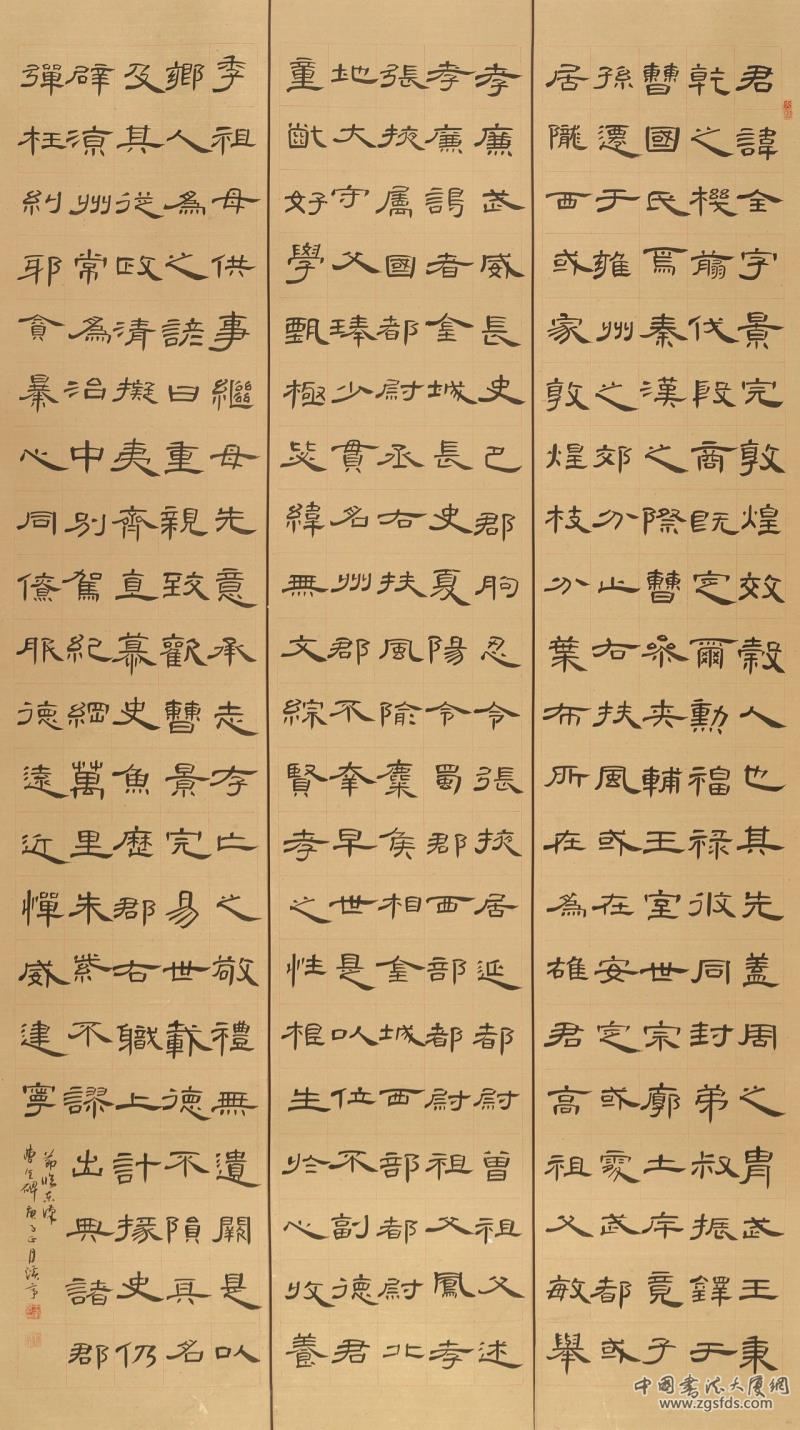 君諱全字景完敦煌效穀人也其先蓋周之胄武王秉
乾之機翦伐殷商既定爾勳福祿攸同封弟叔振鐸于
曹國氏焉秦漢之際曹參夾輔王室世宗廓土斥竟子
孫遷于雍州之郊分止右扶風或在安定或處武都或
居隴西或家敦煌枝分葉布所在為雄君高祖父敏舉
孝廉武威長史巴郡朐忍令張掖居延都尉曾祖父述
孝廉謁者金城長史夏陽令蜀郡西部都尉祖父鳳孝
張掖属國都尉丞右扶風隃麋侯相金城西部都尉北
地大守父琫少貫名州郡不幸早世是以位不副德君
童齔好學甄極毖緯無文綜賢孝之性根生於心收養
季祖母供事繼母先意承志存亡之敬禮無遺闕是以
鄉人為之諺曰重親致歡曹景完易世載德不隕其名
及其從政清擬夷齊直慕史魚歷郡右職上計掾史仍
辟涼州常為治中別駕紀綱萬里朱紫不謬出典諸郡
彈枉糾邪貪暴心同僚服德遠近憚威建寧
節臨東漢
曹全碑庚子正月
中國書法大厦網
www.zgsfds.com